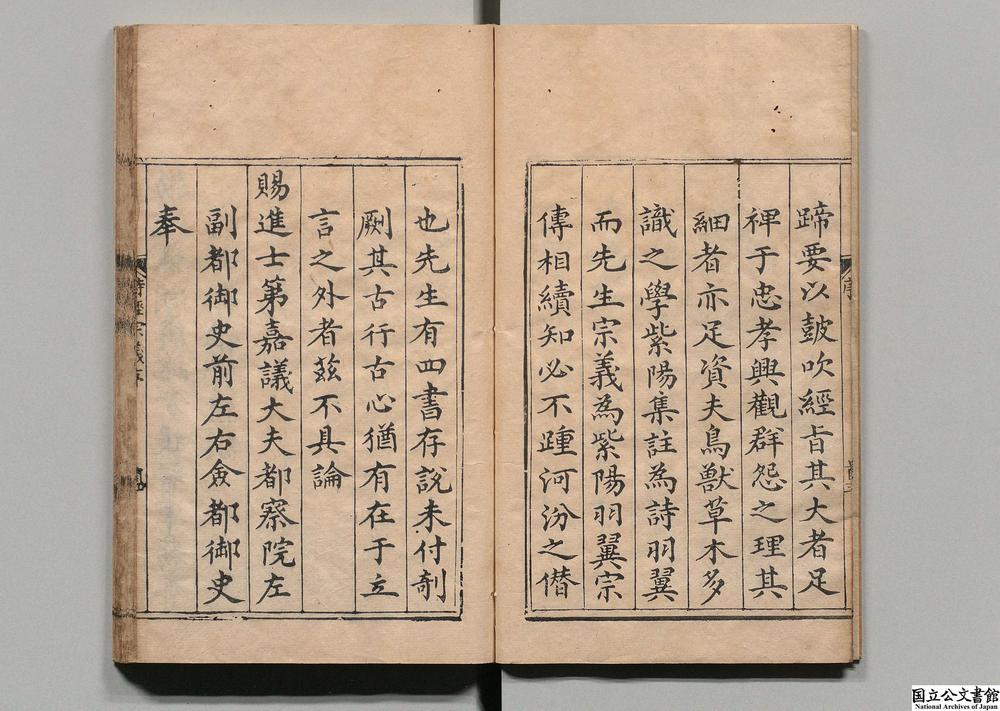 蹄要以皷吹經旨其大者足
禆于忠孝興觀群怨之理其
細者亦足資夫鳥獸草木多
識之學紫陽集註為詩羽翼
而先生宗義為紫陽羽翼宗
傳相續知必不踵河汾之僭
也先生有四書存說未付剞
劂其古行古心猶有在于立
言之外者玆不具論
賜進士第嘉議大夫都察院左
副都御史前左右僉都御史
奉
詩經宗義序
国立公文書館
National Archives of Japan